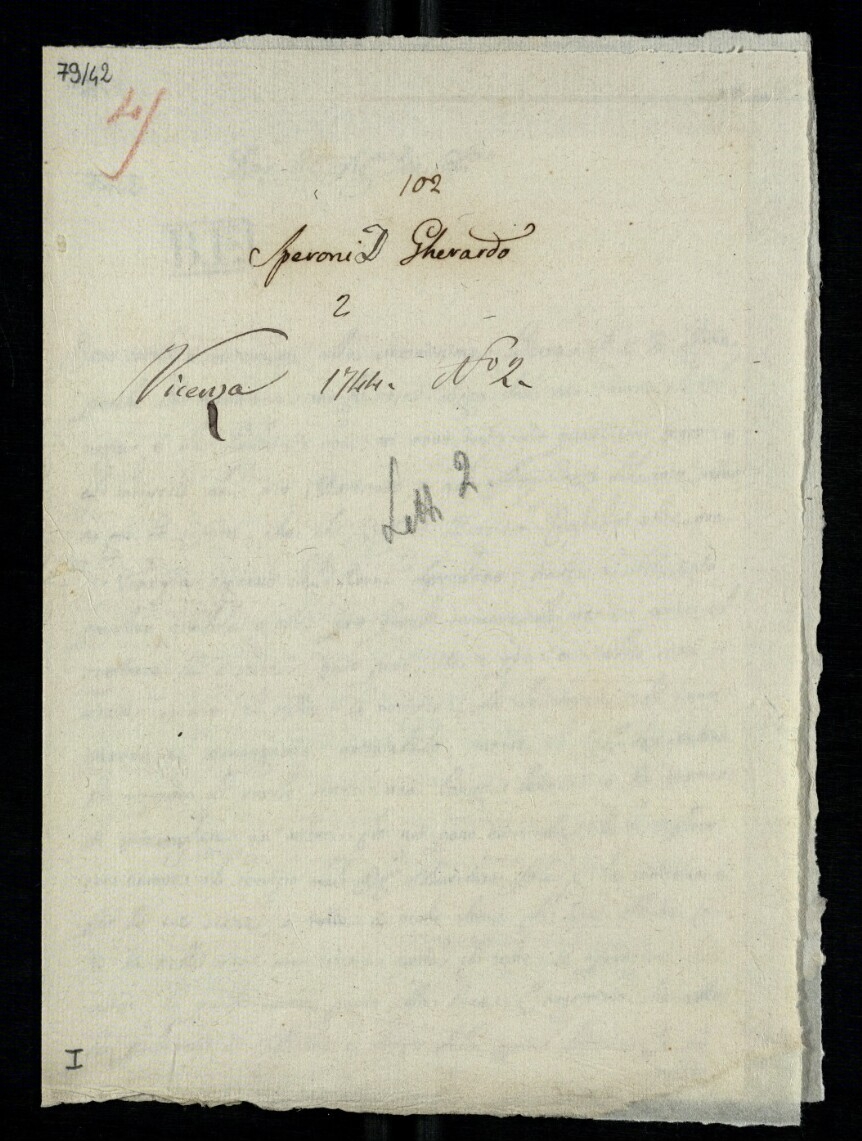 79/42
4
102
Speroni D Gherardo
2
Vicenza 1744. No 2.
Lett. 2
I